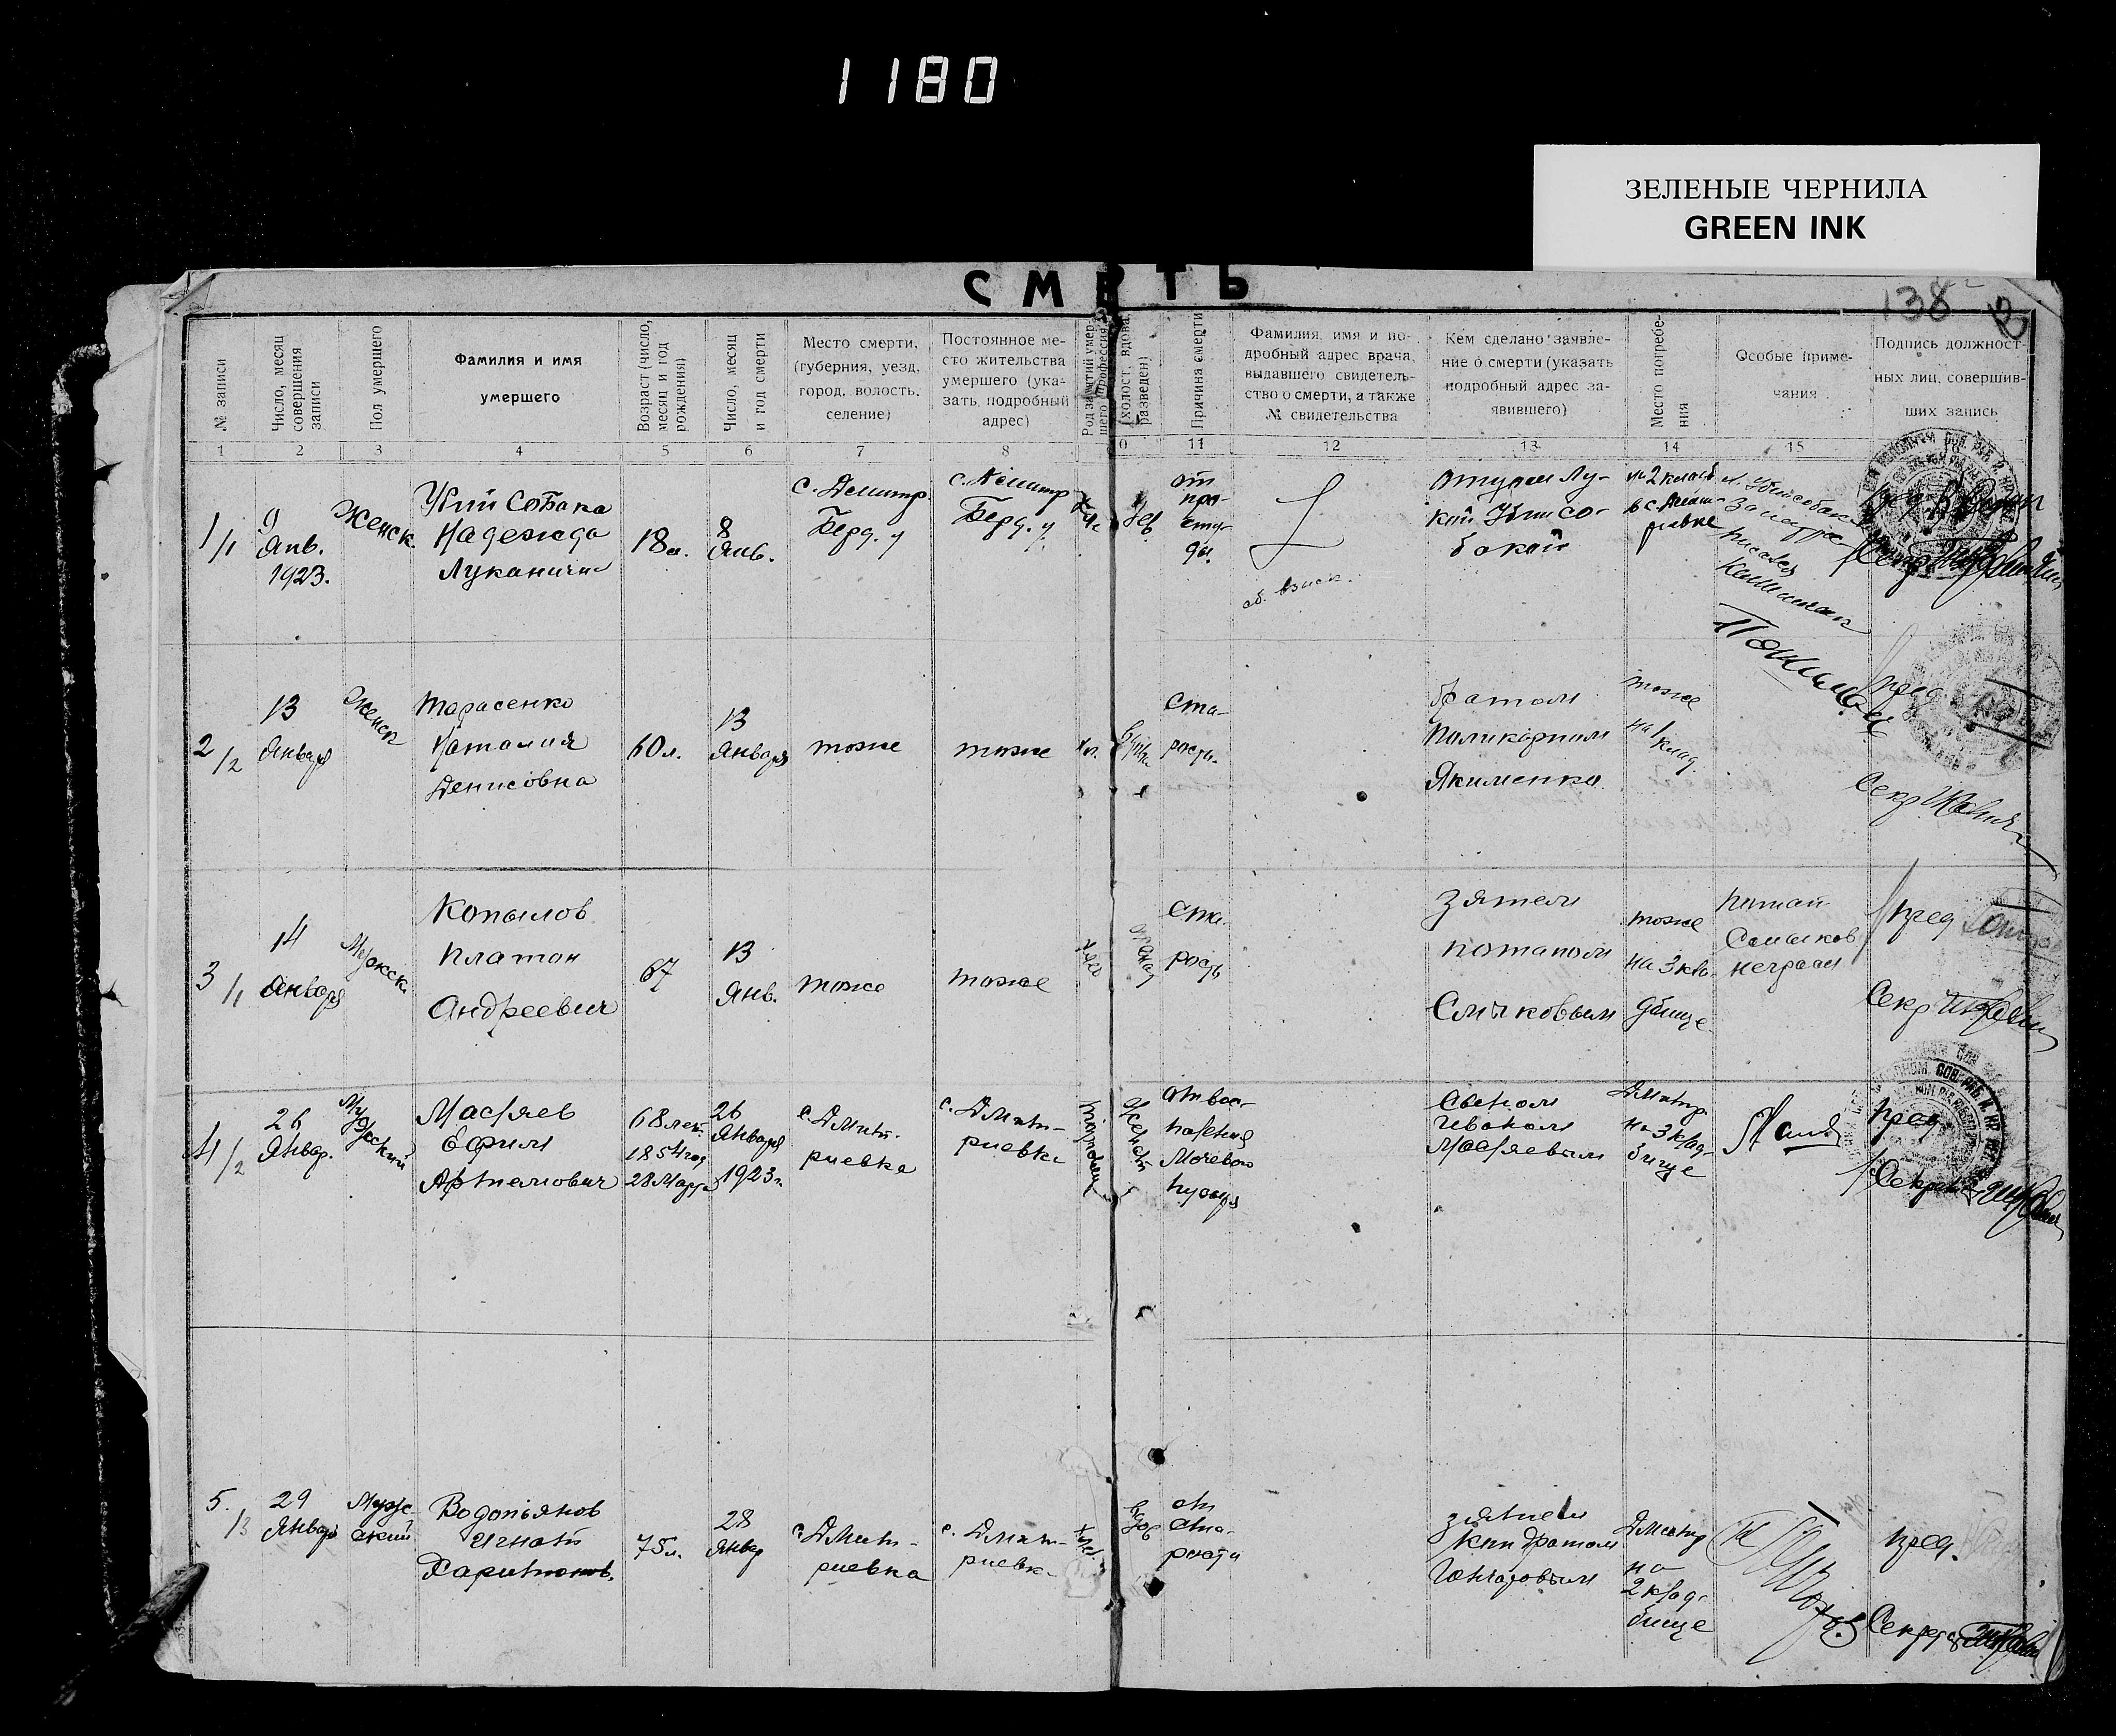 1180
ЗЕЛЕНЫЕ ЧЕРНИЛА
GREEN INK
СМЕРТЬ
138
№ записи
Число, месяц
совершения
записи
Пол умершего
Фамилия и имя
умершего
Возраст (число,
месяц и год
рождения)
Число, месяц
и год смерти
Место смерти,
(губерния, уезд,
город, волость,
селение)
Постоянное ме-
сто жительства
умершего (ука-
зать подробный
адрес)
Род занятий умер-
шего (профессия)
(холост, вдова,
разведен)
Причина смерти
Фамилия, имя и по-
дробный адрес врача,
выдавшего свидетель-
ство о смерти, а также
№ свидетельства
Кем сделано заявле-
ние о смерти (указать
подробный адрес за-
явившего)
Место погребе-
ния
Особые приме-
чания
Подпись должност-
ных лиц, совершив-
ших запись
1 2 3 4 5 6 7 8 0 11 12 13 14 15
1/1
9
Янв.
1923.
Женск.
Убий Собака
Надежда
18 л.
8
Янв.
с. Димитр.
Берд. у
с. Димитр
Берд. у
от
про-
сту-
ды.
отцом Лу-
кой Убисо-
бакой
2/2
13
Января
Женск
Тарасенко
Наталия
Денисовна
60 л.
13
Января
тоже
тоже
ста-
рости
братом
Поликарпом
Якименко
тоже
на 1
клад.
Секр
3/1
14
Января
Мужск.
Копылов
Платон
Андреевич
67
13
Янв.
тоже
тоже
ста-
рость
зятем
Потапом
Смыковым
тоже
на 3 кла-
дбище
Потап
Смыков
неграм
пред
Секр
4/2
26
Январ.
Мужеский
Масляев
Ефим
Артемович
68 лет.
1854 год
28 Марта
26
Января
1923 г.
с. Дмит-
риевка
с. Дмит-
риевка
Женат
от вос-
паления
Мочевого
пузыря
Сыном
Иваном
Масляевым
Дмитр.
на 3 клад-
бище
пред
Секр
5./3
29
Январ
Муже
ский
Водопьянов
Игнат
Харитонов.
75 л.
28
Январ
с. Дмит-
риевка
с. Дмит-
риевк.
вдов
от
ста-
рости
зятем
Кондратом
Гончаровым
Дмитр
на
2 клад-
бище
пред.
Секр